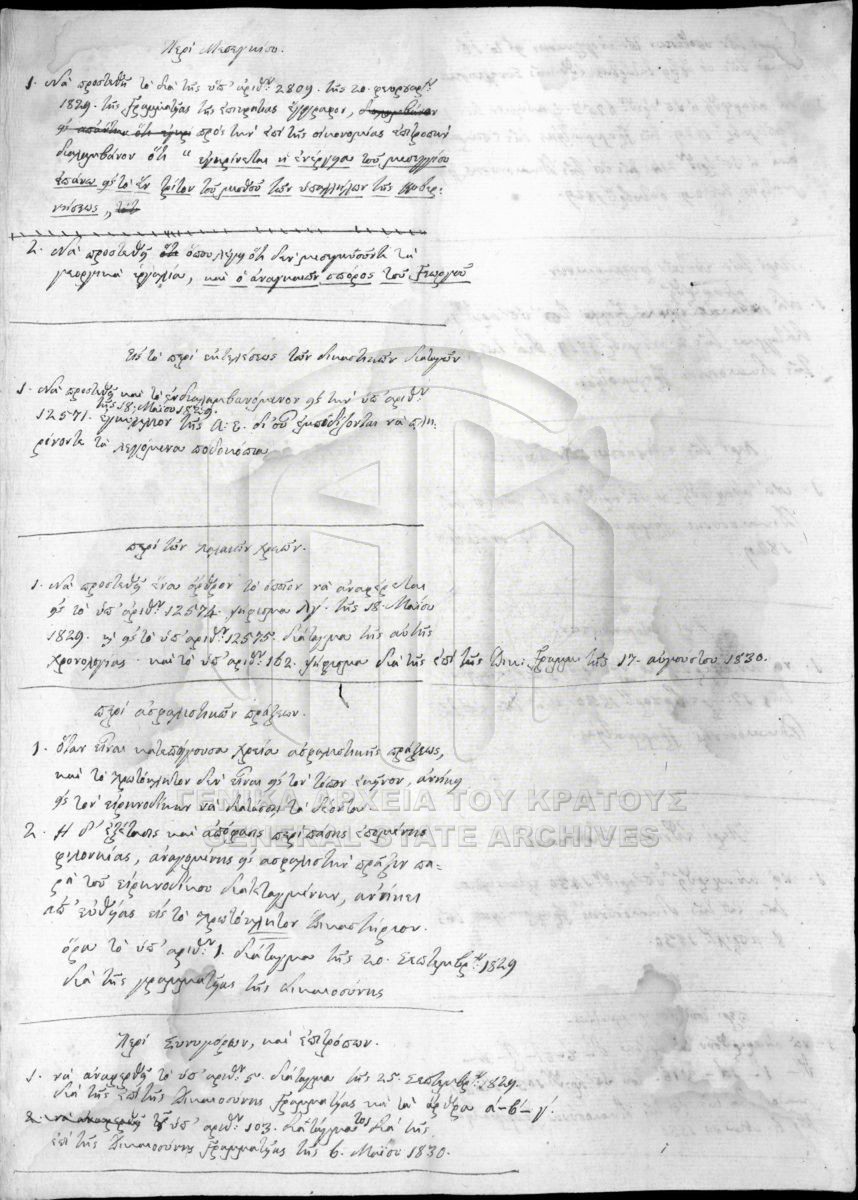 Περὶ Μεσεγκύου.
1. Νὰ προστεθῇ τὸ διὰ τῆς ὑπ' ἀριθ: 2809. τῆς 20. φευρουαρ:
1829. τῆς Γραμματείας τῆς ἐπικρατείας ἔγγραφον,
πρὸς τὴν ἐπὶ τῆς οἰκονομίας ἐπιτροπὴν
διαλαμβάνον ὅτι " ἐγκρίνεται ἡ ἐνέργεια τοῦ μεσεγγύου
ἐπάνω εἰς τὸ ἓν τρίτον τοῦ μισθοῦ τῶν ὑπαλλήλων τῆς Κυβερ-
νήσεως „
2. Νὰ προστεθῇ ὅπου λέγῃ ὅτι δὲν μεσεγγυοῦνται τὰ
γεωργικὰ ἐργαλεῖα, καὶ ὁ ἀναγκαῖος σπόρος τοῦ Γεωργοῦ
Εἰς τὸ περὶ ἐκτελέσεως τῶν δικαστικῶν διαταγῶν
1. Νὰ προστεθῇ καὶ τὸ ἐνδιαλαμβανόμενον εἰς τὴν ὑπ' ἀριθ:
τῆς 18: Μαΐου 1829.
12571. ἐγκύκλιον τῆς Α: Ε. δι' οὗ ἐμποδίζονται νὰ πλη-
ρόνονται τὰ λεγόμενα ποδοκόπια
περὶ τῶν παλαιῶν χρεῶν.
1. Νὰ προστεθῇ ἕνα ἄρθρον τὸ ὁποῖον νὰ ἀναφέρεται
εἰς τὸ ὑπ' ἀριθ: 12574. ψήφισμα ΛΓ' τῆς 18. Μαΐου
1829. καὶ εἰς τὸ ὑπ' ἀριθ: 12575. διάταγμα τῆς αὐτῆς
χρονολογίας. καὶ τὸ ὑπ' ἀριθ: 162. ψήφισμα διὰ τῆς ἐπὶ τῆς Δικ: Γραμμ: τῆς 17. αὐγούστου 1830.
περὶ ἀσφαλιστικῶν πράξεων.
1. ὅταν εἶναι κατεπείγουσα χρεία ἀσφαλιστικῆς πράξεως,
καὶ τὸ πρωτόκλητον δὲν εἶναι εἰς τὸν τόπον ἐκεῖνον, ἀνήκει
εἰς τὸν εἰρηνοδίκην νὰ διατάσσῃ τὰ δέοντα
ΓΕΝΙΚΑ ΑΡΧΕΙΑ ΤΟΥ ΚΡΑΤΟΥΣ
GENERAL STATE ARCHIVES
2. Ἡ δ' ἐξέτασις καὶ ἀπόφασις περὶ πάσης ἑπομένης
φιλονεικίας, ἀναγομένης εἰς ἀσφαλιστικὴν πρᾶξιν πα-
ρὰ τοῦ εἰρηνοδίκου διατεταγμένην, ἀνήκει
ἀπ' εὐθείας εἰς τὸ πρωτόκλητον Δικαστήριον.
ὅρα τὸ ὑπ' ἀριθ: 1. διάταγμα τῆς 20. Σεπτεμβρ: 1829
διὰ τῆς γραμματείας τῆς δικαιοσύνης
Περὶ Συνηγόρων, καὶ ἐπιτρόπων.
1. νὰ ἀναφερθῇ τὸ ὑπ' ἀριθ: 5. διάταγμα τῆς 25. Σεπτεμβρ: 1829.
διὰ τῆς ἐπὶ τῆς Δικαιοσύνης Γραμματείας καὶ τὰ ἄρθρα α'-β'-γ'.
ὑπ' ἀριθ: 103. διατάγματος διὰ τῆς
ἐπὶ τῆς Δικαιοσύνης Γραμματείας τῆς 6. Μαΐου 1830.